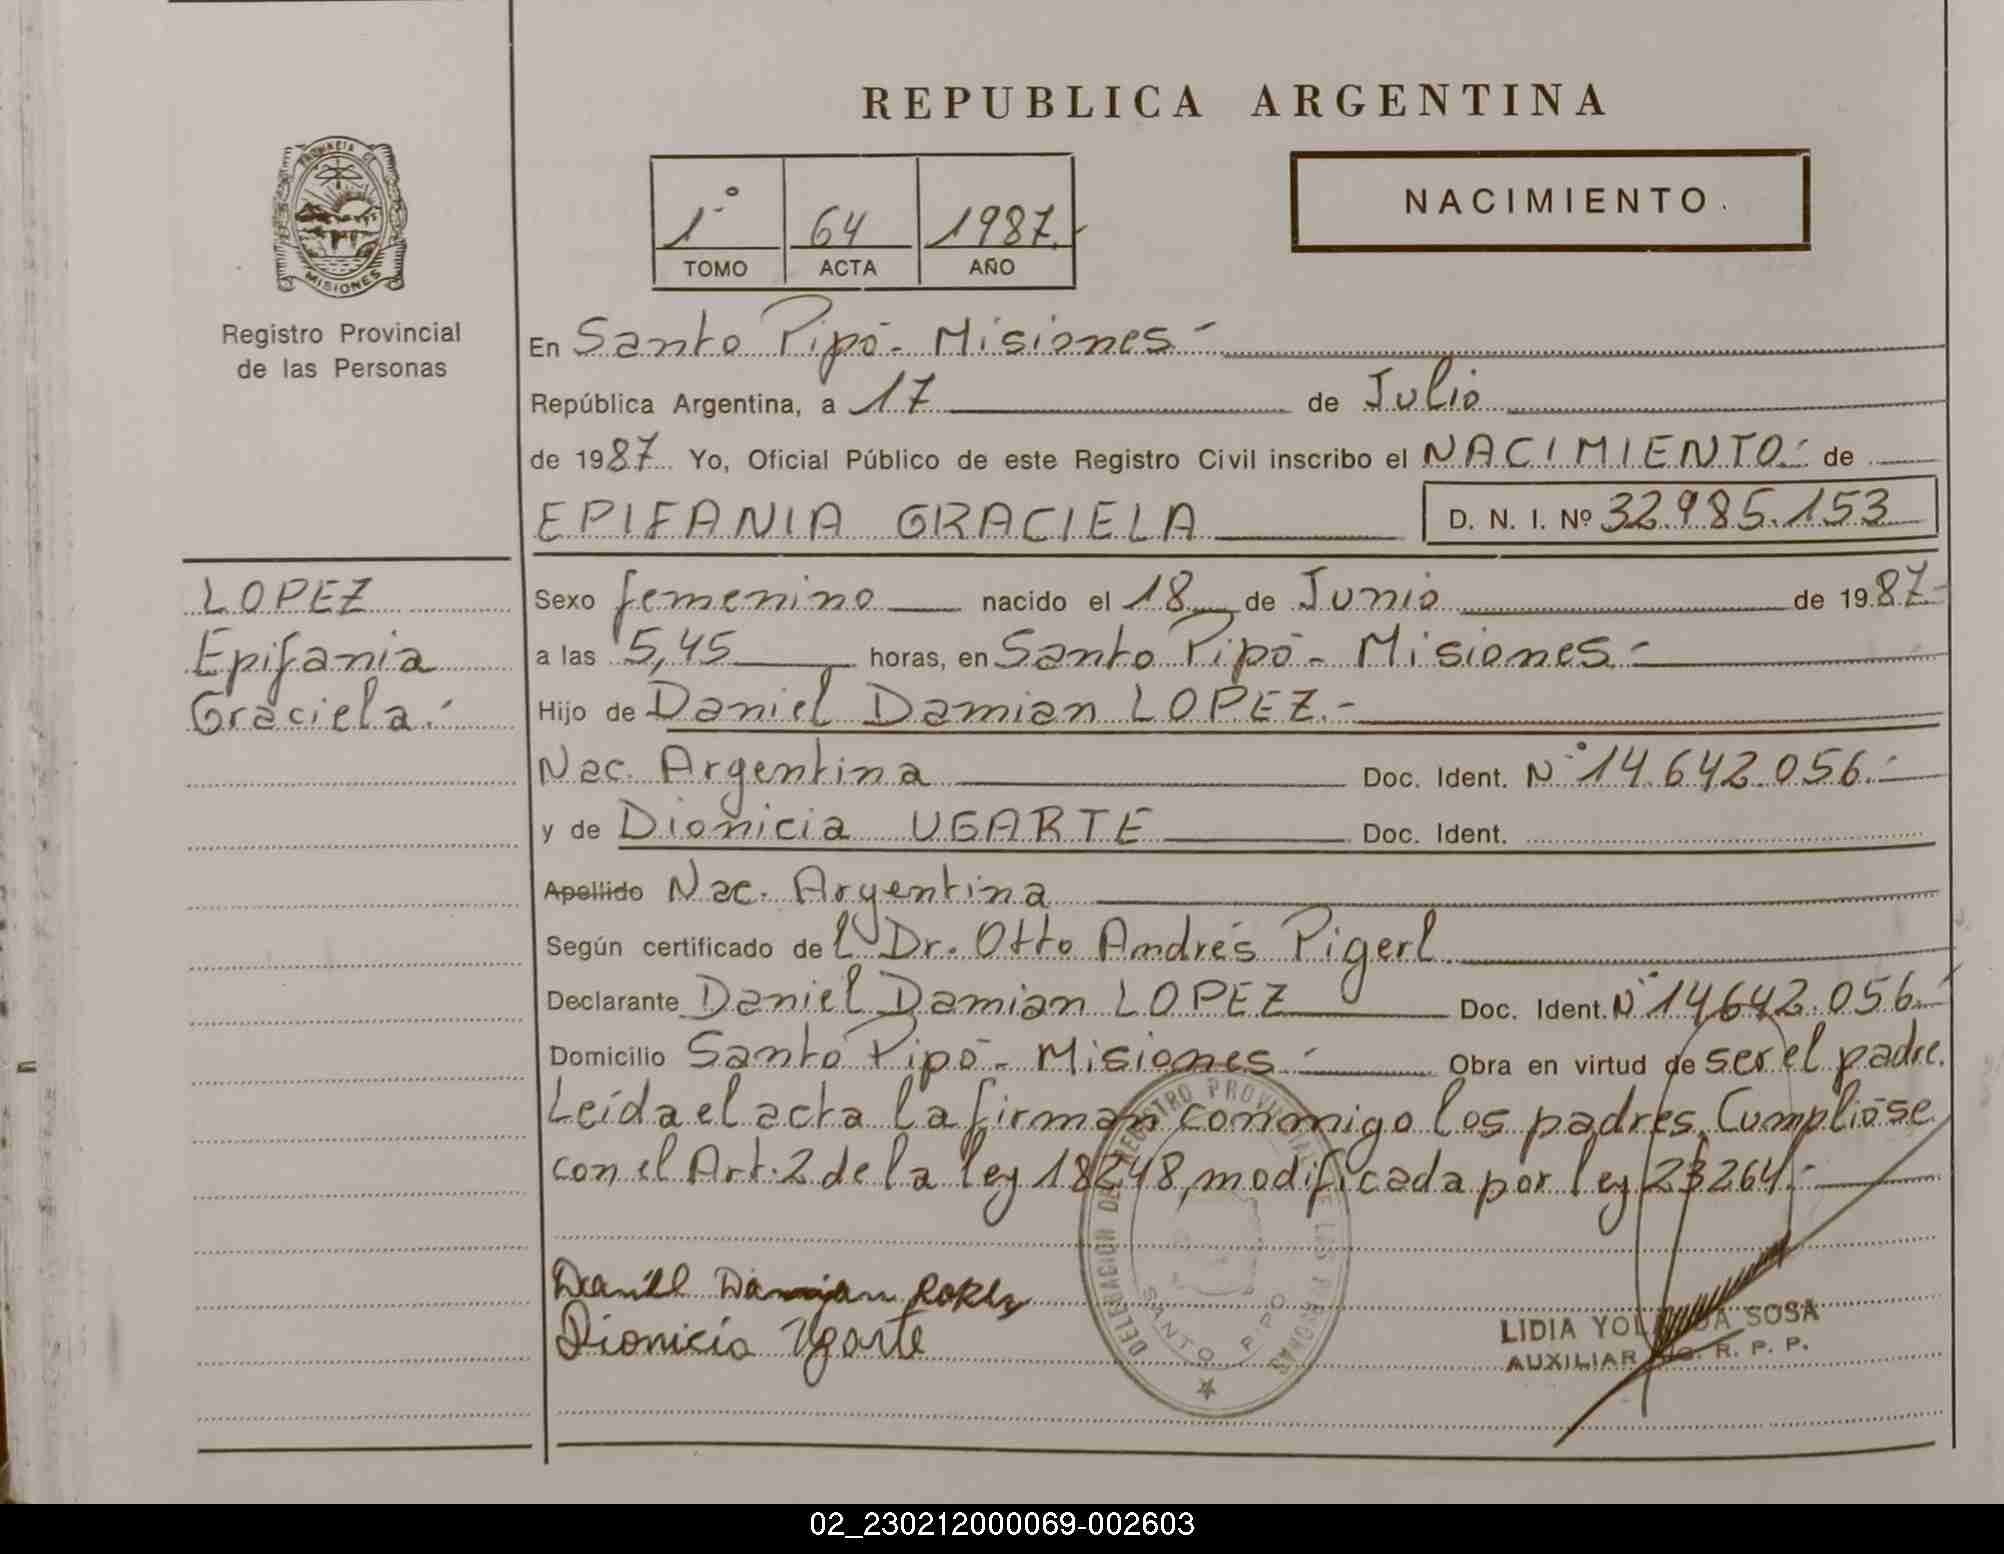 REPUBLICA ARGENTINA
PROVINCIA DE
MISIONES
Registro Provincial
de las Personas
1º 64 1987.-
TOMO ACTA AÑO
NACIMIENTO.
En Santo Pipó.- Misiones.-
República Argentina, a 17 de Julio
de 1987. Yo, Oficial Público de este Registro Civil inscribo el NACIMIENTO.- de
EPIFANIA GRACIELA D. N. I. Nº 32.985.153
LOPEZ
Epifania
Graciela.-
Sexo femenino nacido el 18 de Junio de 1987-
a las 5,45 horas, en Santo Pipó.- Misiones.-
Hijo de Daniel Damian LOPEZ.-
Nac. Argentina Doc. Ident. Nº 14.642.056.-
y de Dionicia UGARTE Doc. Ident.
Apellido Nac. Argentina
Según certificado del Dr. Otto Andrés Pigerl
Declarante Daniel Damian LOPEZ Doc. Ident. Nº 14.642.056.-
Domicilio Santo Pipó.- Misiones.- Obra en virtud de ser el padre.
Leída el acta la firman conmigo los padres. Cumplióse
con el Art. 2 de la ley 18248, modificada por ley 23264.-
Daniel Damian Lopez
Dionicia Ugarte
DELEGACION DEL REGISTRO PROVINCIAL DE LAS PERSONAS
SANTO PIPO
LIDIA YOLANDA SOSA
AUXILIAR R. P. P.
02_230212000069-002603